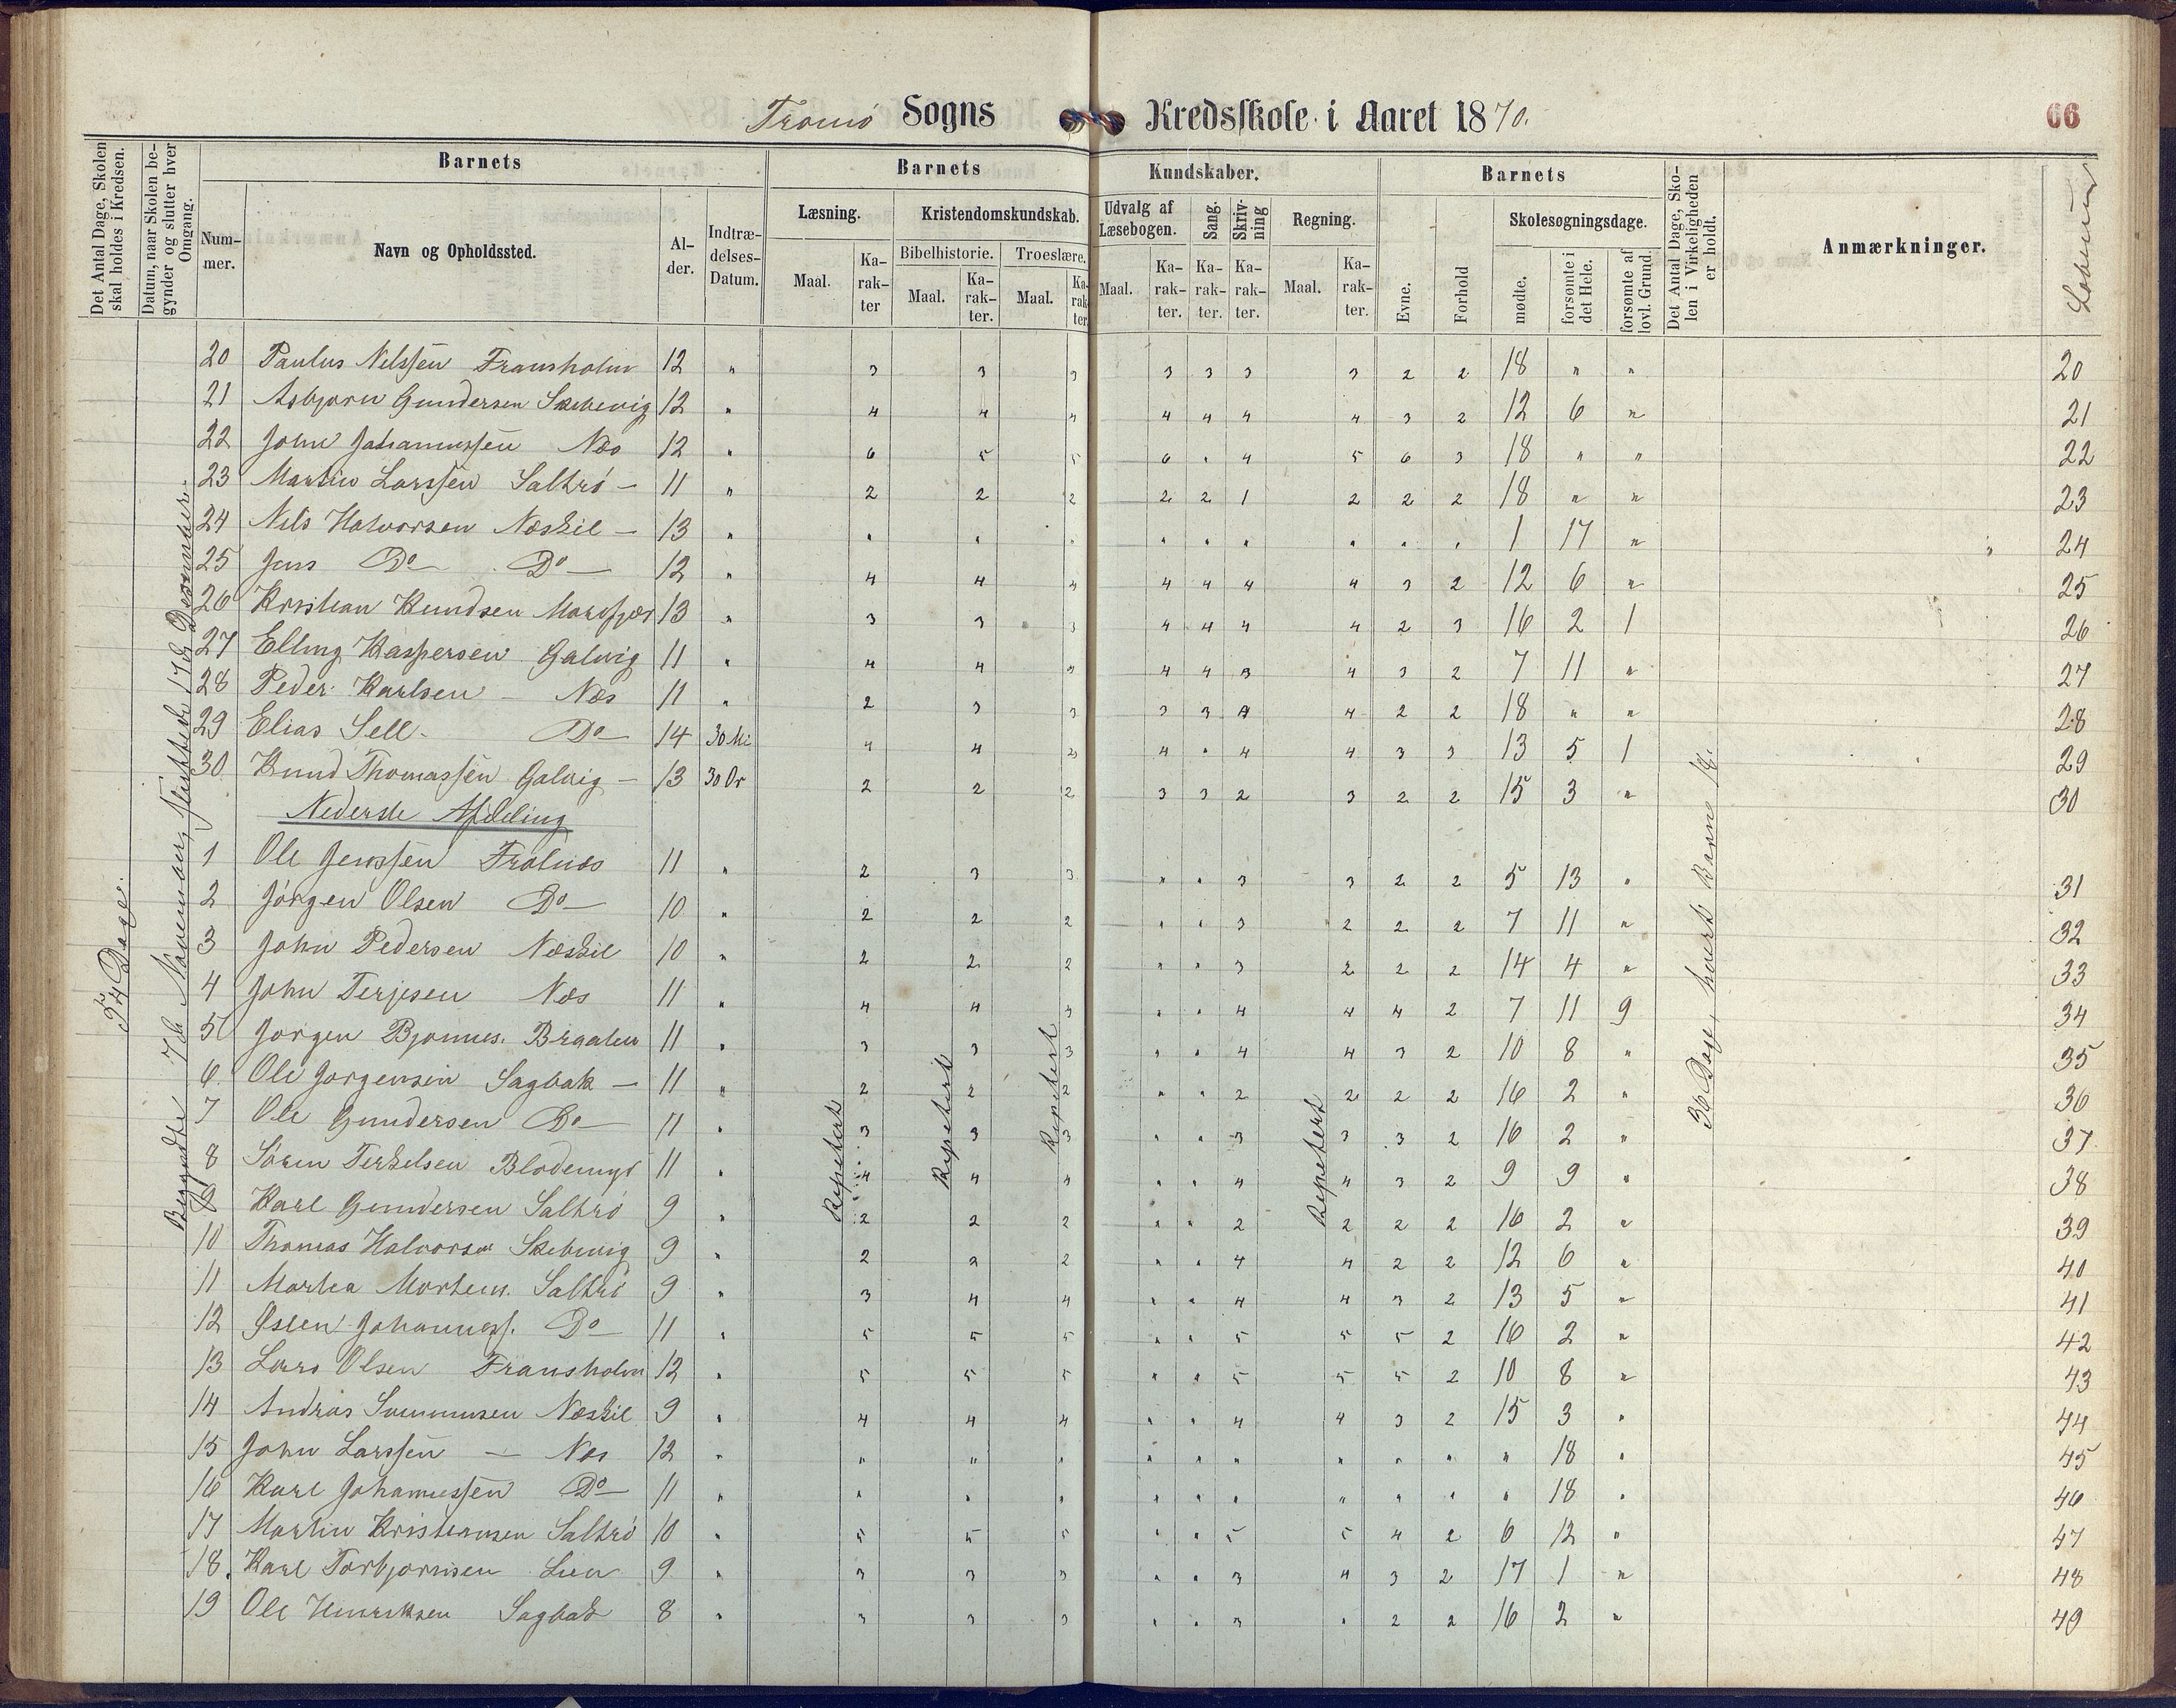 Tromö Sogns Kredsskole i Aaret 1870. 66
Det Antal Dage, Skolen skal holdes i Kredsen.
Datum, naar Skolen begynder og slutter hver Omgang.
Barnets
Barnets Kundskaber.
Barnets
Det Antal Dage, Skolen i Virkeligheden er holdt.
Anmærkninger.
Num-mer. Navn og Opholdssted. Al-der. Indtræ-delses-Datum.
Læsning. Kristendomskundskab. Udvalg af Læsebogen. Sang. Skriv-ning Regning. Evne. Forhold Skolesøgningsdage.
Bibelhistorie. Troeslære.
Maal. Ka-rak-ter Maal. Ka-rak-ter. Maal. Ka-rak-ter. Maal. Ka-rak-ter. Ka-rak-ter. Ka-rak-ter. Maal. Ka-rak-ter. mødte. forsømte i det Hele. forsømte af lovl. Grund.
54 Dage.
Begyndte 7de November, sluttede 17de Desember.
20 Paulus Nilssen Fransholm 12 " 3 3 3 3 3 3 3 2 2 18 " " 20
21 Asbjørn Gundersen Skebevig 12 " 4 4 4 4 4 4 4 3 2 12 6 " 21
22 John Johannessen Næs 12 " 6 5 5 6 " 4 5 6 3 18 " " 22
23 Martin Larssen Saltrö - 11 " 2 2 2 2 2 1 2 2 2 18 " " 23
24 Nils Halvorsen Næskil - 13 " " " " " " " " " " 1 17 " 24
25 Jens Do Do 12 " 4 4 4 4 4 4 4 3 2 12 6 " 25
26 Kristian Knudsen Marsfjær 13 " 3 3 3 4 4 4 4 2 3 16 2 1 26
27 Elling Kaspersen Galvig 11 " 4 4 4 4 4 3 4 3 2 7 11 " 27
28 Peder Karlsen - Næs 11 " 2 3 3 3 3 4 4 2 2 18 " " 28
29 Elias Sell - Do 14 30 Mi 4 4 2 4 " 4 4 3 3 13 5 1 29
30 Knud Thomassen Galvig - 13 30 Or 2 2 2 3 3 2 3 2 2 15 3 " 30
Nederste Afdeling
1 Ole Jenssen Frolnæs 11 " 2 3 3 " " 3 3 2 2 5 13 " 31
2 Jörgen Olsen Do 10 " 2 2 2 " " 3 2 2 2 7 11 " 32
3 John Pedersen Næskil 10 " 2 2 2 " " 3 2 2 2 14 4 " 33
4 John Terjesen Næs 11 " 4 4 3 " " 4 4 4 2 7 11 9 34
5 Jorgen Bjonnes. Braaten 11 " 3 3 3 " " 4 4 3 2 10 8 " 35
6 Ole Jorgensen Sagbak - 11 " 2 2 2 " " 2 2 2 2 16 2 " 36
7 Ole Gundersen Do 11 " 3 3 3 " " 3 3 3 2 16 2 " 37
8 Sören Terkelsen Blodemyr 11 " 4 4 4 " " 4 4 3 2 9 9 " 38
9 Karl Gundersen Saltrö 9 " 2 2 2 " " 2 2 2 2 16 2 " 39
10 Thomas Halvorsen Skebevig 9 " 2 2 2 " " 4 4 2 2 12 6 " 40
11 Martea Mortens. Saltrö 9 " 3 4 4 " " 4 4 3 2 13 5 " 41
12 Osten Johanness. Do 11 " 5 5 5 " " 5 5 5 2 16 2 " 42
13 Lars Olsen Fransholm 12 " 5 5 5 " " 5 5 5 2 10 8 " 43
14 Andras Simmensen Næskil 9 " 4 4 4 " " 4 4 3 2 15 3 " 44
15 John Larssen - Næs 12 " " " " " " " " " " " 18 " 45
16 Karl Johannessen Do 11 " " " " " " " " " " " 18 " 46
17 Martin Kristiansen Saltrö 10 " 5 5 5 " " 5 5 4 2 6 12 " 47
18. Karl Torbjornsen Lien 9 " 3 3 3 " " 3 4 3 2 17 1 " 48
19 Ole Henriksen Sagbak 8 " 3 3 3 " " 3 " 2 2 16 2 " 49
Repetert
Repetert
Repetert
Repetert
36 Dage, hvert Barn 18.